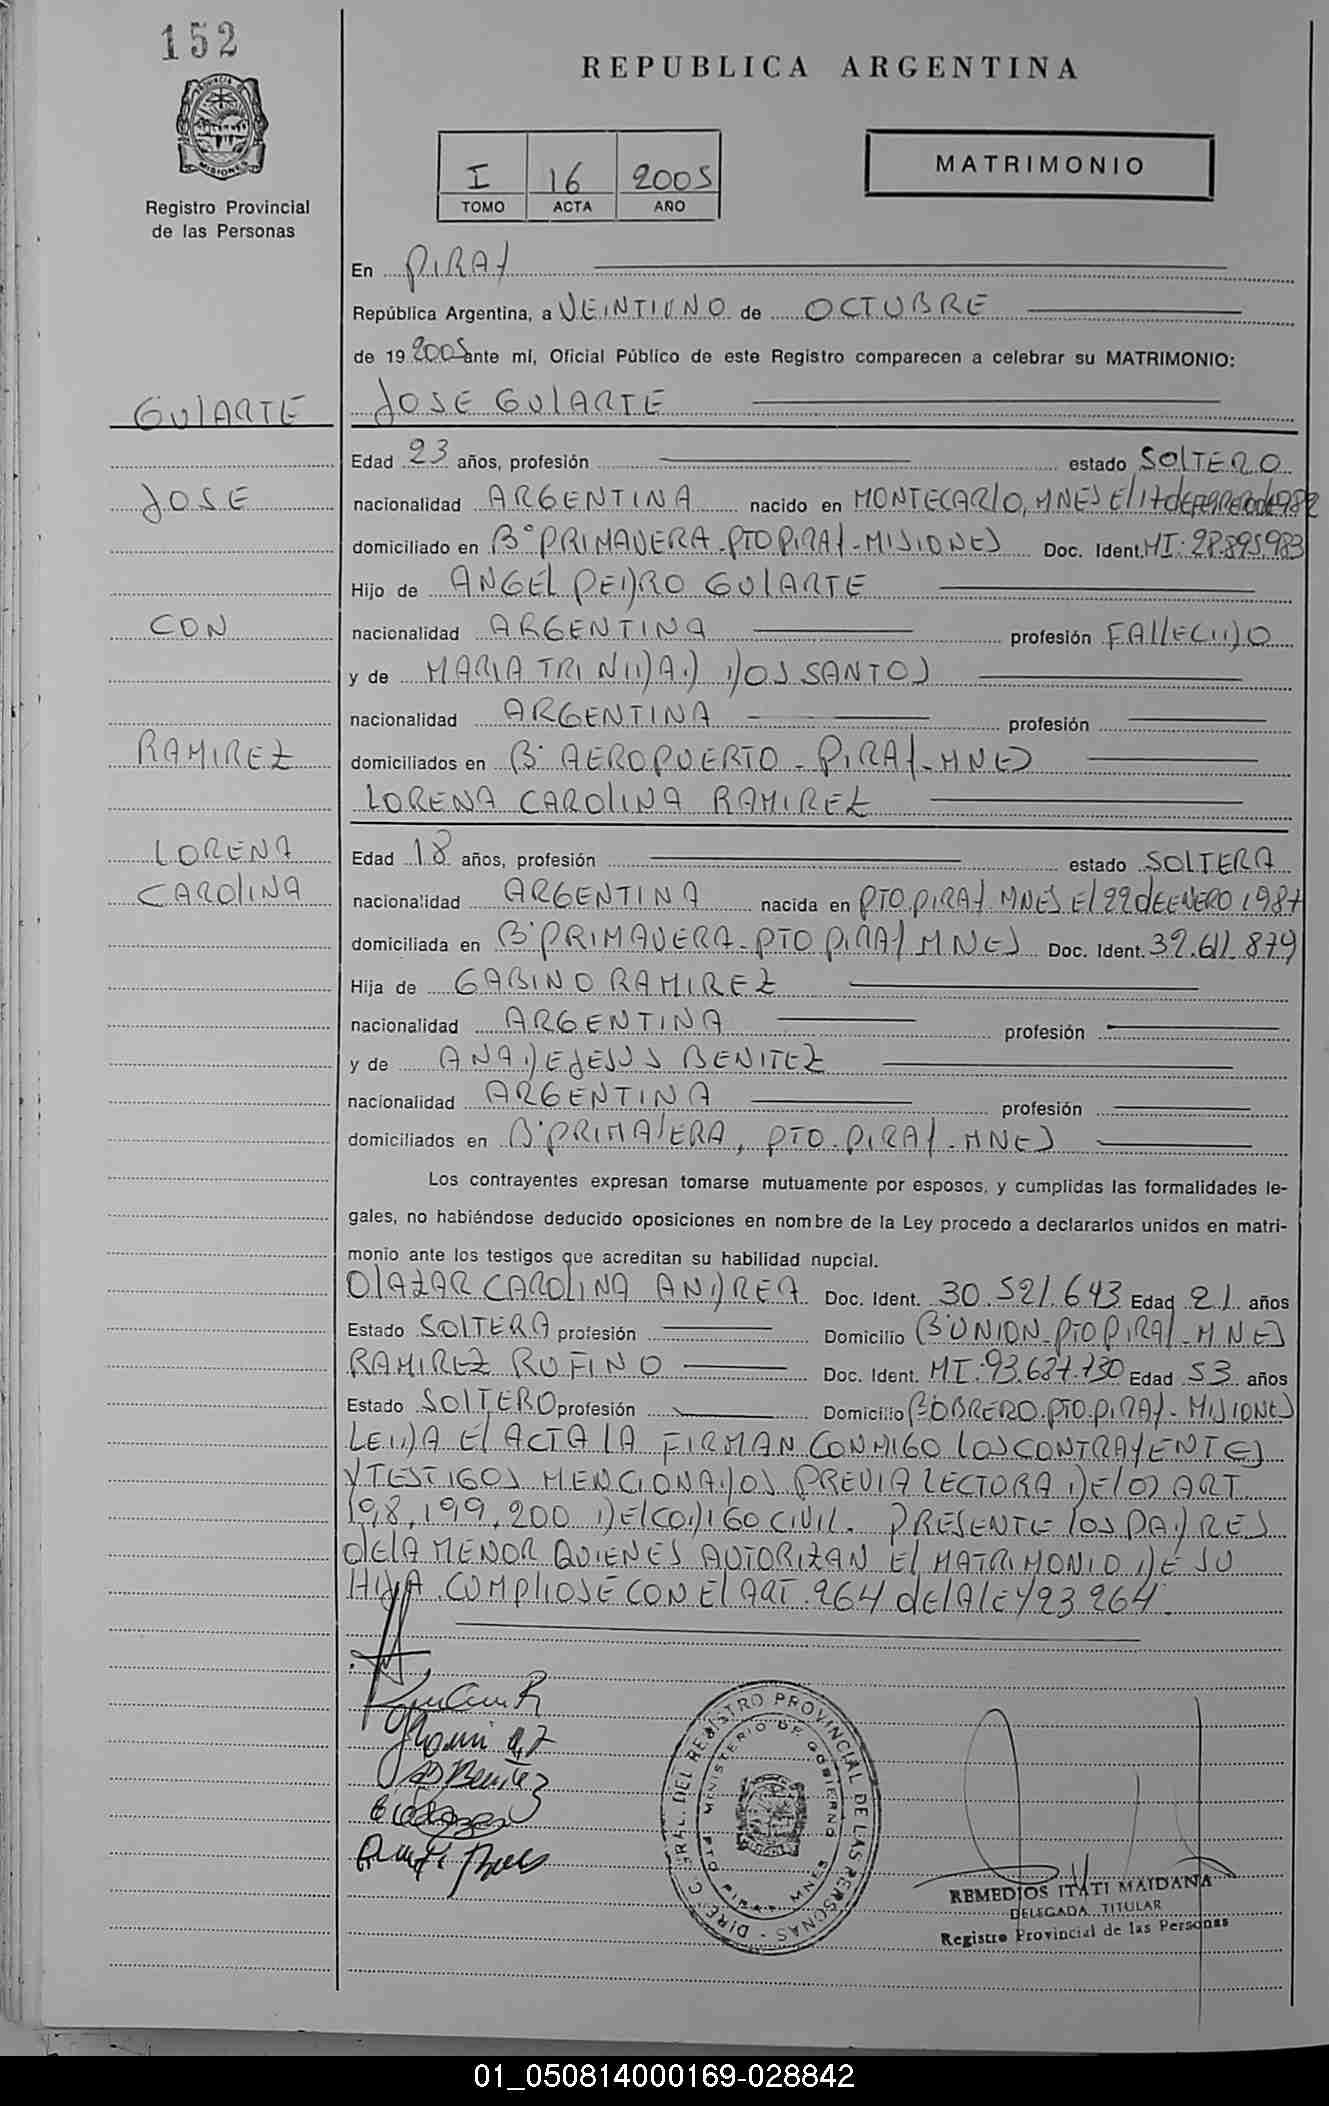 152
REPUBLICA ARGENTINA
MISIONES
Registro Provincial
de las Personas
I 16 2005
TOMO ACTA AÑO
MATRIMONIO
En PIRAY
República Argentina, a VEINTIUNO de OCTUBRE
de 19 2005 ante mí, Oficial Público de este Registro comparecen a celebrar su MATRIMONIO:
GULARTE
JOSE GULARTE
Edad 23 años, profesión estado SOLTERO
JOSE
nacionalidad ARGENTINA nacido en MONTECARLO, MNES El 17 dE FEBRERO dE 1982
domiciliado en B° PRIMAVERA - PTO PIRAY - MISIONES Doc. Ident. MI: 28.895.983
Hijo de ANGEL PEDRO GULARTE
CON
nacionalidad ARGENTINA profesión FALLECIDO
y de MARIA TRINIDAD DOS SANTOS
nacionalidad ARGENTINA profesión
RAMIREZ
domiciliados en B° AEROPUERTO - PIRAY - MNES
LORENA CAROLINA RAMIREZ
LORENA
Edad 18 años, profesión estado SOLTERA
CAROLINA
nacionalidad ARGENTINA nacida en PTO PIRAY MNES El 22 dE ENERO 1987
domiciliada en B° PRIMAVERA - PTO PIRAY MNES Doc. Ident. 32.611.879
Hija de GABINO RAMIREZ
nacionalidad ARGENTINA profesión
y de ANA DE JESUS BENITEZ
nacionalidad ARGENTINA profesión
domiciliados en B° PRIMAVERA, PTO. PIRAY - MNES
Los contrayentes expresan tomarse mutuamente por esposos, y cumplidas las formalidades le-
gales, no habiéndose deducido oposiciones en nombre de la Ley procedo a declararlos unidos en matri-
monio ante los testigos que acreditan su habilidad nupcial.
OLAZAR CAROLINA ANDREA Doc. Ident. 30.521.643 Edad 21 años
Estado SOLTERA profesión Domicilio B° UNION - PTO PIRAY - MNES
RAMIREZ RUFINO Doc. Ident. MI: 93.637.730 Edad 53 años
Estado SOLTERO profesión Domicilio B° OBRERO PTO. PIRAY - MISIONES
LEIDA El ACTA LA FIRMAN CONMIGO LOS CONTRAYENTES
Y TESTIGOS MENCIONADOS PREVIA LECTURA DE LOS ART.
198, 199, 200 DEL CODIGO CIVIL. PRESENTE LOS PADRES
dE LA MENOR QUIENES AUTORIZAN El MATRIMONIO DE SU
HIJA. CUMPLIOSE CON El ART. 264 dE LA LEY 23264.
Benitez
DIREC. GRAL. DEL REGISTRO PROVINCIAL DE LAS PERSONAS -
MINISTERIO DE GOBIERNO
PTO. PIRAY MNES
REMEDIOS ITATI MAIDANA
DELEGADA TITULAR
Registro Provincial de las Personas
01_050814000169-028842